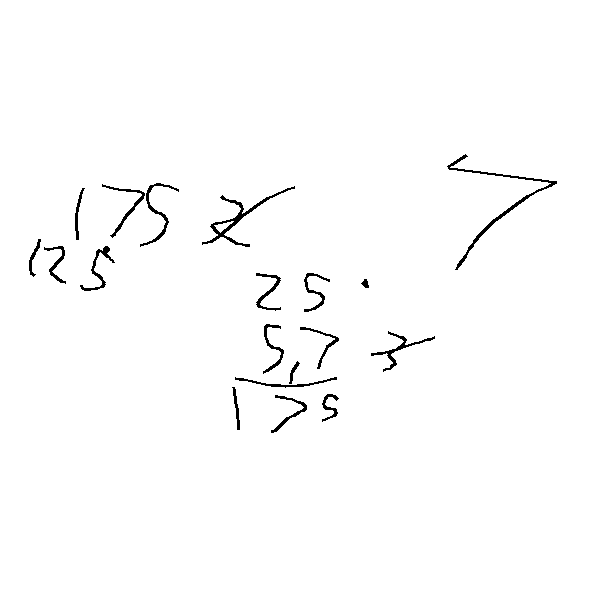 175 2
125
7
25 .
5,7 3
175